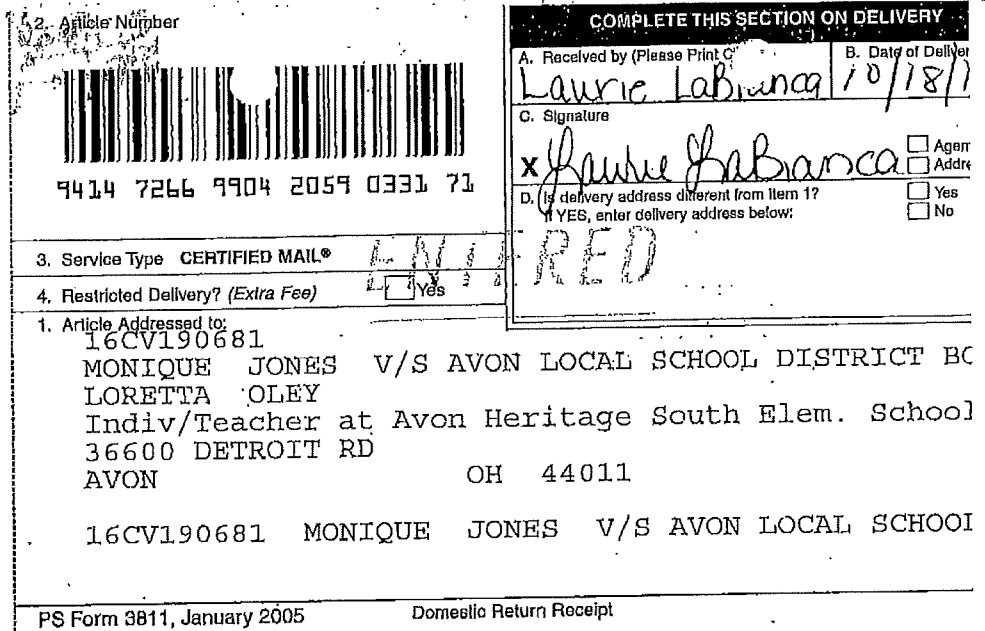 2. Article Number
9414 7266 9904 2059 0331 71
COMPLETE THIS SECTION ON DELIVERY
A. Received by (Please Print
Laurie LaBianca
B. Date of Deliver
10/18/1
C. Signature
X Laurie LaBianca
Agen
Addre
D. Is delivery address different from item 1?
If YES, enter delivery address below:
Yes
No
3. Service Type CERTIFIED MAIL®
ENTERED
4. Restricted Delivery? (Extra Fee) Yes
1. Article Addressed to:
16CV190681
MONIQUE JONES V/S AVON LOCAL SCHOOL DISTRICT BO
LORETTA OLEY
Indiv/Teacher at Avon Heritage South Elem. School
36600 DETROIT RD
AVON OH 44011
16CV190681 MONIQUE JONES V/S AVON LOCAL SCHOOL
PS Form 3811, January 2005 Domestic Return Receipt